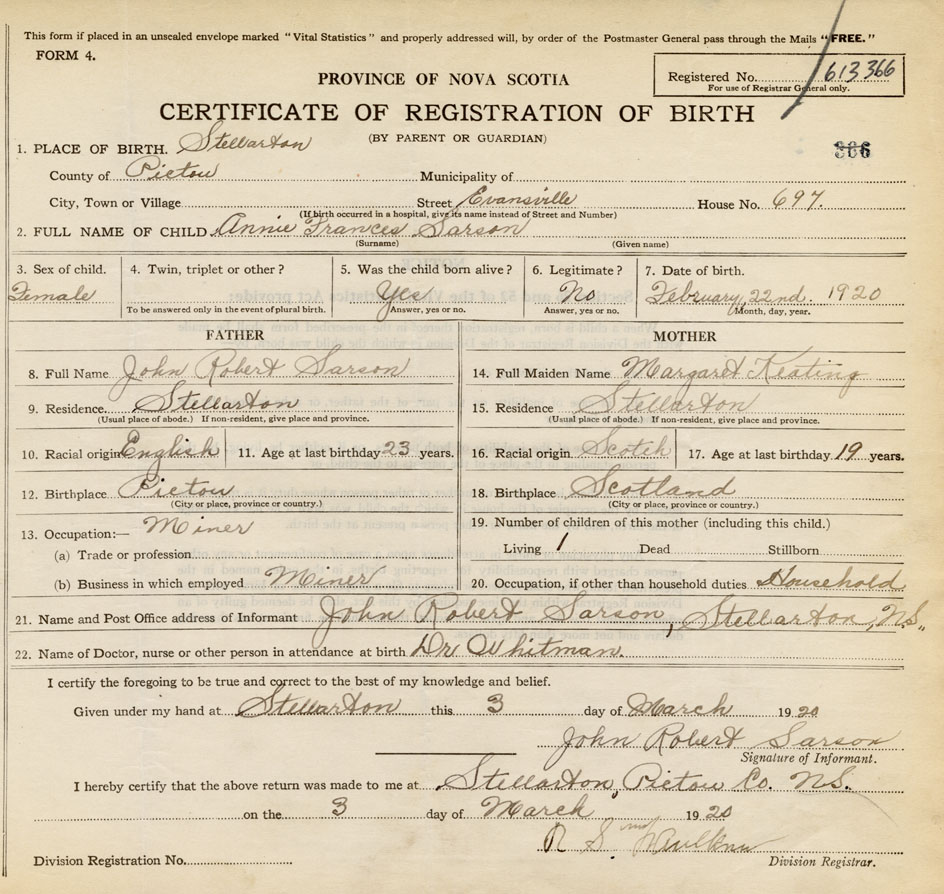 This form if placed in an unsealed envelope marked "Vital Statistics" and properly addressed will, by order of the Postmaster General pass through the Mails "FREE."
FORM 4.
PROVINCE OF NOVA SCOTIA
Registered No. 613366
For use of Registrar General only.
CERTIFICATE OF REGISTRATION OF BIRTH
(BY PARENT OR GUARDIAN)
1. PLACE OF BIRTH. Stellarton
366
County of Pictou Municipality of
City, Town or Village Street Evansville House No. 697.
(If birth occurred in a hospital, give its name instead of Street and Number)
2. FULL NAME OF CHILD Annie Frances Sarson
(Surname) (Given name)
3. Sex of child. 4. Twin, triplet or other? 5. Was the child born alive? 6. Legitimate? 7. Date of birth.
Female Yes No February, 22nd. 1920
To be answered only in the event of plural birth. Answer, yes or no. Answer, yes or no. Month, day, year.
FATHER
8. Full Name John Robert Sarson
9. Residence. Stellarton
(Usual place of abode.) If non-resident, give place and province.
10. Racial origin English 11. Age at last birthday 23 years.
12. Birthplace Pictou
(City or place, province or country.)
13. Occupation:— Miner
(a) Trade or profession
(b) Business in which employed Miner
MOTHER
14. Full Maiden Name Margaret Keating
15. Residence Stellarton
(Usual place of abode.) If non-resident, give place and province.
16. Racial origin Scotch 17. Age at last birthday 19 years.
18. Birthplace Scotland
(City or place, province or country.)
19. Number of children of this mother (including this child.)
Living 1 Dead Stillborn
20. Occupation, if other than household duties Household
21. Name and Post Office address of Informant John Robert Sarson, Stellarton, N.S.
22. Name of Doctor, nurse or other person in attendance at birth Dr Whitman.
I certify the foregoing to be true and correct to the best of my knowledge and belief.
Given under my hand at Stellarton this 3 day of March 1920
John Robert Sarson
Signature of Informant.
I hereby certify that the above return was made to me at Stellarton, Pictou Co. N.S.
on the 3 day of March 1920
R S
Division Registration No. Division Registrar.